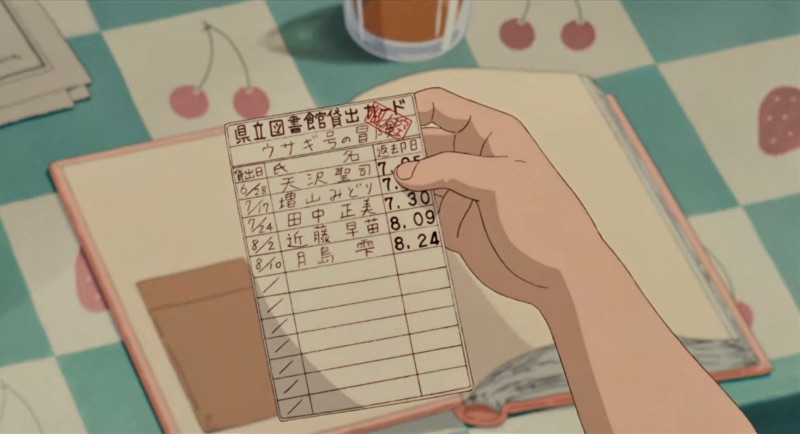 県立図書館貸出カード
ウサギ号の冒
貸出日 氏 名 返却日
6/28 天沢聖司 7.05
7/17 増山みどり 7.
7/24 田中正美 7.30
8/2 近藤早苗 8.09
8/10 月島雫 8.24
/
/
/
/
/
/